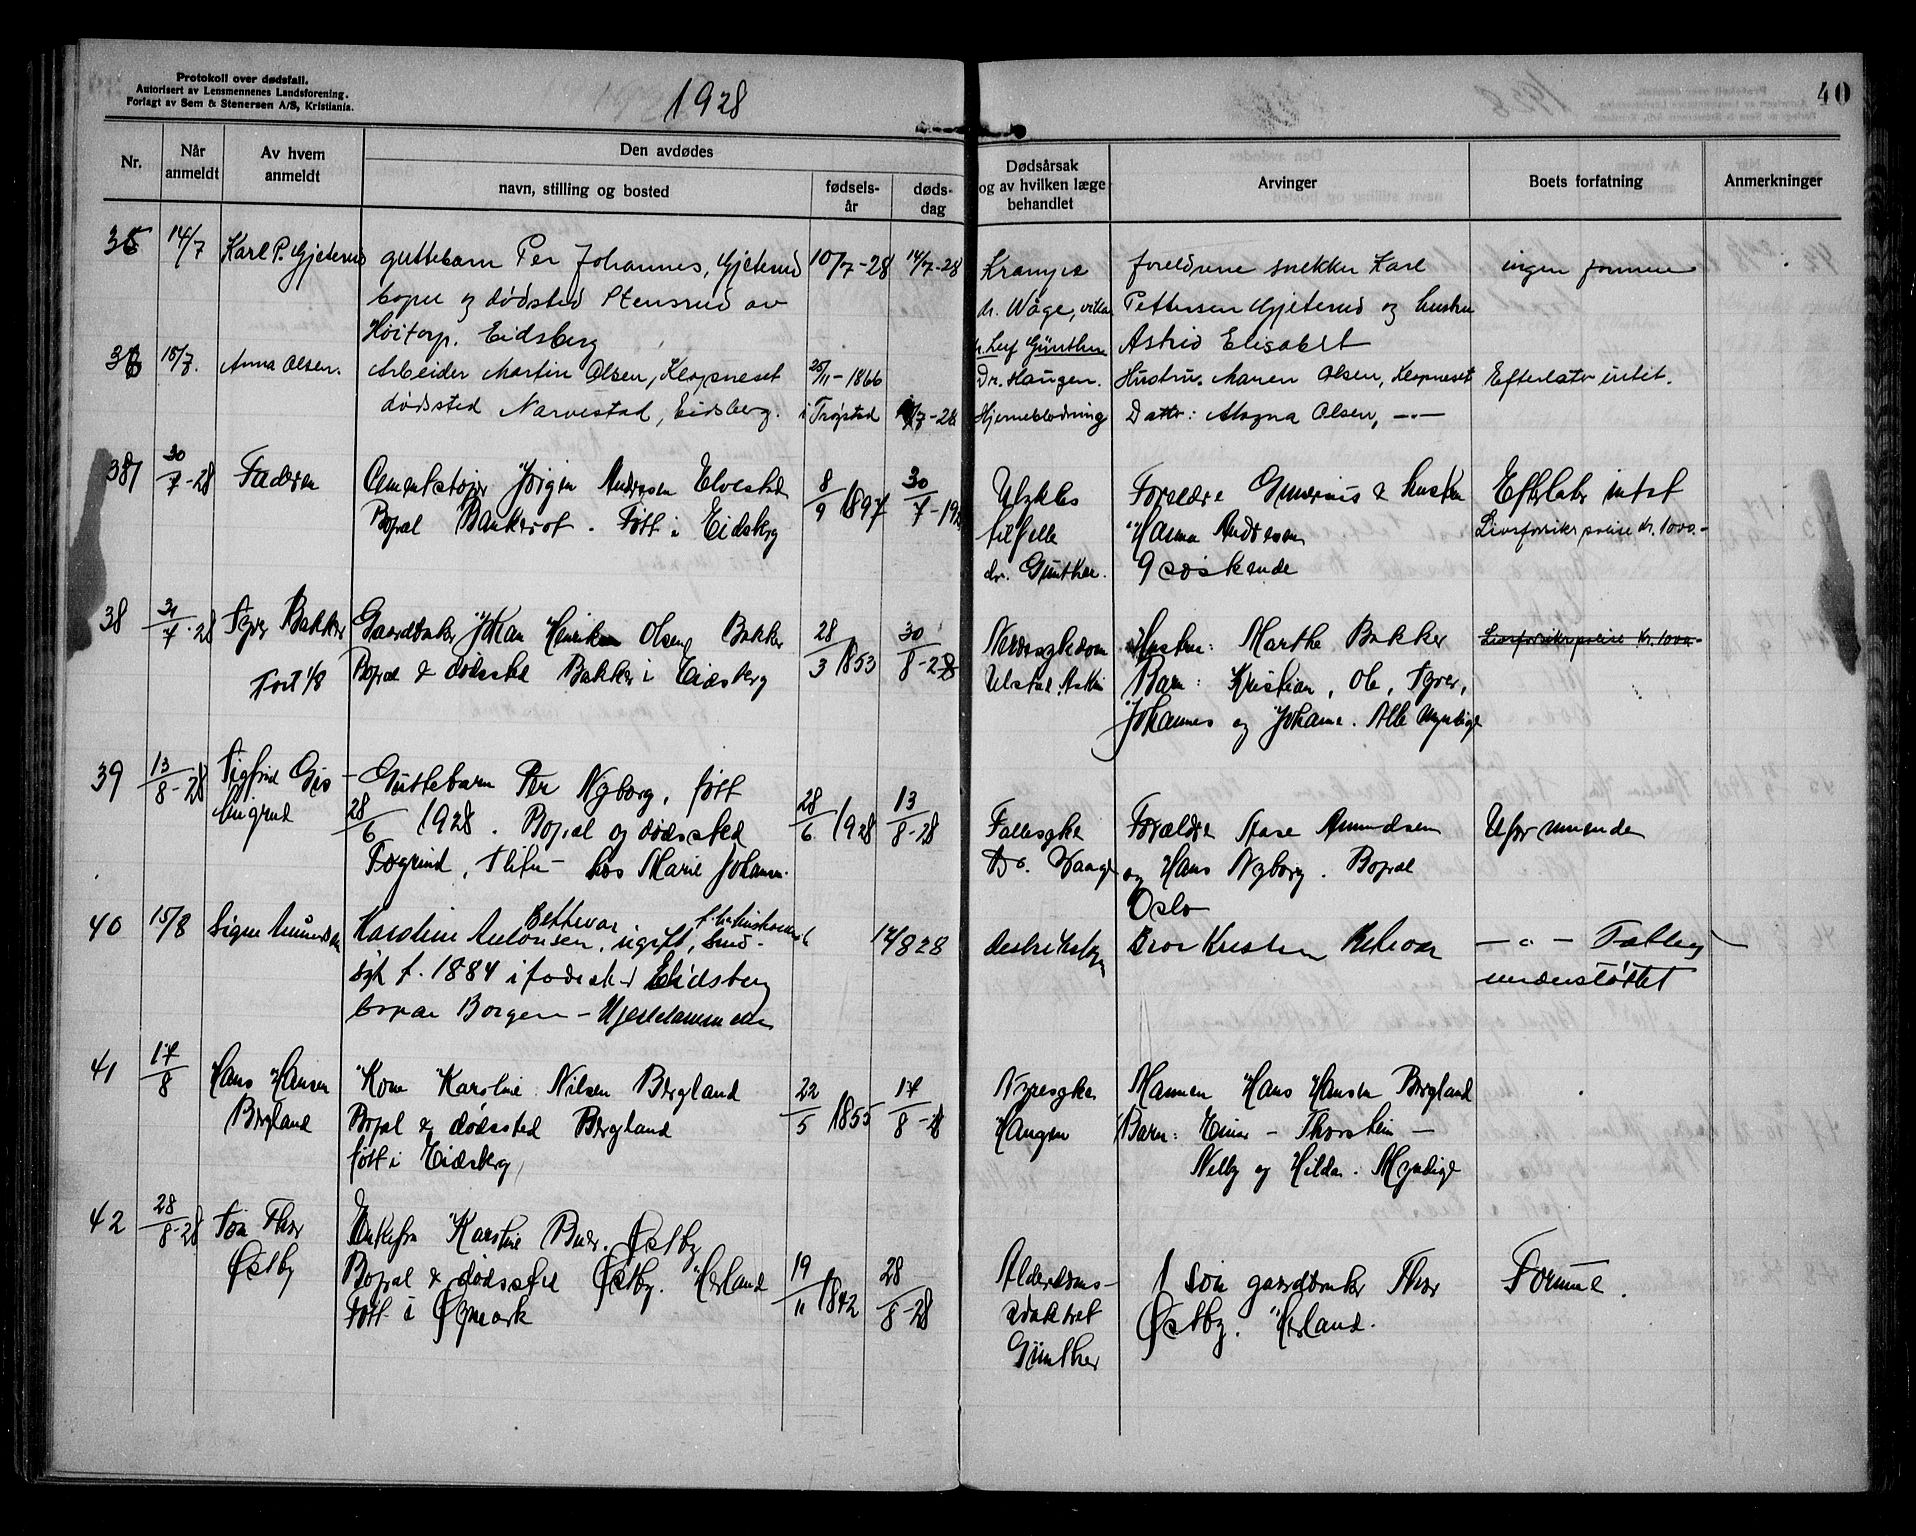 Protokoll over dødsfall.
Autorisert av Lensmennenes Landsforening.
Forlagt av Sem & Stenersen A/S, Kristiania.
1928
40
Nr.
Når anmeldt
Av hvem anmeldt
Den avdødes
navn, stilling og bosted
fødsels-år
døds-dag
Dødsårsak og av hvilken læge behandlet
Arvinger
Boets forfatning
Anmerkninger
35 14/7 Karl P. Gjeterud guttebarn Per Johannes, Gjeterud 10/7-28 14/7-28 Krampe foreldrene snekker Karl ingen formue
bopel og dødsted Stensrud av dr. Wåge, Pettersen Gjeterud og hustru
Høitorp. Eidsberg Günther Astrid Elisabet
36 15/7. Anna Olsen. Arbeider Martin Olsen, Klopneset 25/11-1866 Dr. Haugen. Hustru. Maren Olsen, Klopneset Efterlater intet.
dødsted Narvestad, Eidsberg. i Trøgstad /7-28 Hjerneblødning Datter: Magna Olsen, -"-
37 30/7-28 Faderen Cementstøper Jørgen Andersen Elvestad 8/9 1897 30/7-19 Ulykkes Forældre Gunerius & hustru Efterlater intet
Bopæl Bankerot. Født i Eidsberg tilfelle Hanna Andersen Livsforsikrpolise kr. 1000.-
dr. Gunther. 9 søskende
38 31/7-28 Syver Bakker Gaardbruker Johan Henriksen Olsen Bakker 28/3 1853 30/8-28 Hustru: Marthe Bakker Livsforsikrpolise kr. 1000.-
Fort 1/8 Bopæl & dødssted Bakker i Eidsberg Ulstal Askim Barn: Kristian, Ole, Syver,
Johannes og Johanne. Alle myndige
39 13/8-28 Sigfrid Guttebarn Per Nyborg, født 28/6 1928 13/8-28
28/6 1928. Bopæl og dødssted Fallesyke Forældre Aase Amundsen Uformuende
, Slitu - hos Marie Johansen. Dr. Vaage og Hans Nyborg. Bopæl
Oslo
40 15/8 Signe Amundsen Karoline Antonsen Bettevar, ugift, 14/8 28 Bror Kristen -"- Fattig
f. 1884 i Eidsberg understøttet
bopæl Borgen -
41 17/8 Hans Hansen Kone Karoline Nilsen Bergland 22/5 1855 17/8-28 Nyresyke Mannen Hans Hansen Bergland
Bergland Bopæl & dødssted Bergland Haugen Barn: Einar - Thorstein -
født i Eidsberg, Nelly og Hilda. Myndige
42 28/8-28 Søn Thor Enkefru Karoline Østby
Østby Bopæl & dødssted Østby. Herland 19/11 1842 28/8-28 Alderdoms- 1 søn gaardbruker Thor Formue.
født i Øymark svakhet Østby. Herland.
Günther